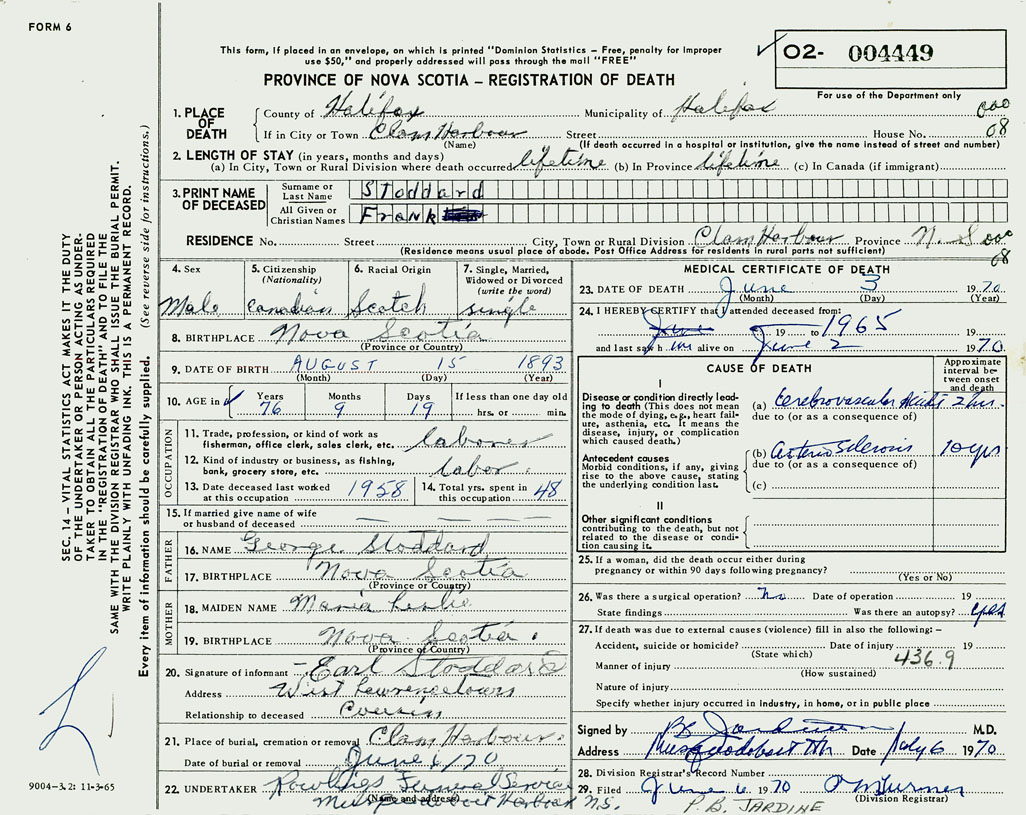 FORM 6
This form, if placed in an envelope, on which is printed "Dominion Statistics – Free, penalty for improper
use $50," and properly addressed will pass through the mail "FREE"
PROVINCE OF NOVA SCOTIA – REGISTRATION OF DEATH
✓ O2- 004449
For use of the Department only
1. PLACE OF DEATH
County of Halifax Municipality of Halifax 000
If in City or Town Clam Harbour Street House No. 08
(Name) (If death occurred in a hospital or institution, give the name instead of street and number)
2. LENGTH OF STAY (in years, months and days)
(a) In City, Town or Rural Division where death occurred lifetime (b) In Province lifetime (c) In Canada (if immigrant)
3. PRINT NAME OF DECEASED
Surname or Last Name Stoddard
All Given or Christian Names Frank
RESIDENCE No. Street City, Town or Rural Division Clam Harbour Province N. S 000
(Residence means usual place of abode. Post Office Address for residents in rural parts not sufficient) 08
4. Sex Male
5. Citizenship (Nationality) Canadian
6. Racial Origin Scotch
7. Single, Married, Widowed or Divorced (write the word) single
8. BIRTHPLACE Nova Scotia
(Province or Country)
9. DATE OF BIRTH AUGUST 15 1893
(Month) (Day) (Year)
10. AGE in ✓ Years 76 Months 9 Days 19 If less than one day old hrs. or min.
OCCUPATION
11. Trade, profession, or kind of work as fisherman, office clerk, sales clerk, etc. laborer
12. Kind of industry or business, as fishing, bank, grocery store, etc. labor.
13. Date deceased last worked at this occupation 1958
14. Total yrs. spent in this occupation 48
15. If married give name of wife or husband of deceased — — — —
FATHER
16. NAME George Stoddard
17. BIRTHPLACE Nova Scotia
(Province or Country)
MOTHER
18. MAIDEN NAME Maria Leslie
19. BIRTHPLACE Nova Scotia.
(Province or Country)
20. Signature of informant – Earl Stoddard
Address West Lawrencetown
Relationship to deceased Cousin
21. Place of burial, cremation or removal Clam Harbour.
Date of burial or removal June 6/70
22. UNDERTAKER Funeral Service
(Name and address)
Musquodoboit Harbour N.S.
MEDICAL CERTIFICATE OF DEATH
23. DATE OF DEATH June 3 1970
(Month) (Day) (Year)
24. I HEREBY CERTIFY that I attended deceased from:
19 to 1965 19
and last saw h im alive on June 2 1970
CAUSE OF DEATH
Approximate interval between onset and death
I
Disease or condition directly leading to death (This does not mean the mode of dying, e.g., heart failure, asthenia, etc. It means the disease, injury, or complication which caused death.)
(a) Cerebrovascular 2 hrs.
due to (or as a consequence of)
Antecedent causes
Morbid conditions, if any, giving rise to the above cause, stating the underlying condition last.
(b) arteriosclerosis 10 yrs
due to (or as a consequence of)
(c)
II
Other significant conditions
contributing to the death, but not related to the disease or condition causing it.
25. If a woman, did the death occur either during
pregnancy or within 90 days following pregnancy?
(Yes or No)
26. Was there a surgical operation? No Date of operation 19
State findings Was there an autopsy? yes
27. If death was due to external causes (violence) fill in also the following: –
Accident, suicide or homicide? Date of injury 19
(State which)
Manner of injury 436.9
(How sustained)
Nature of injury
Specify whether injury occurred in industry, in home, or in public place
Signed by PB Jardine M.D.
Address Musquodoboit Hr Date July 6 1970
28. Division Registrar's Record Number
29. Filed June 6 1970
(Division Registrar)
P.B. JARDINE
SEC. 14 – VITAL STATISTICS ACT MAKES IT THE DUTY
OF THE UNDERTAKER OR PERSON ACTING AS UNDER-
TAKER TO OBTAIN ALL THE PARTICULARS REQUIRED
IN THE "REGISTRATION OF DEATH" AND TO FILE THE
SAME WITH THE DIVISION REGISTRAR WHO SHALL ISSUE THE BURIAL PERMIT.
WRITE PLAINLY WITH UNFADING INK. THIS IS A PERMANENT RECORD.
Every item of information should be carefully supplied. (See reverse side for instructions.)
9004-3.2: 11-3-65